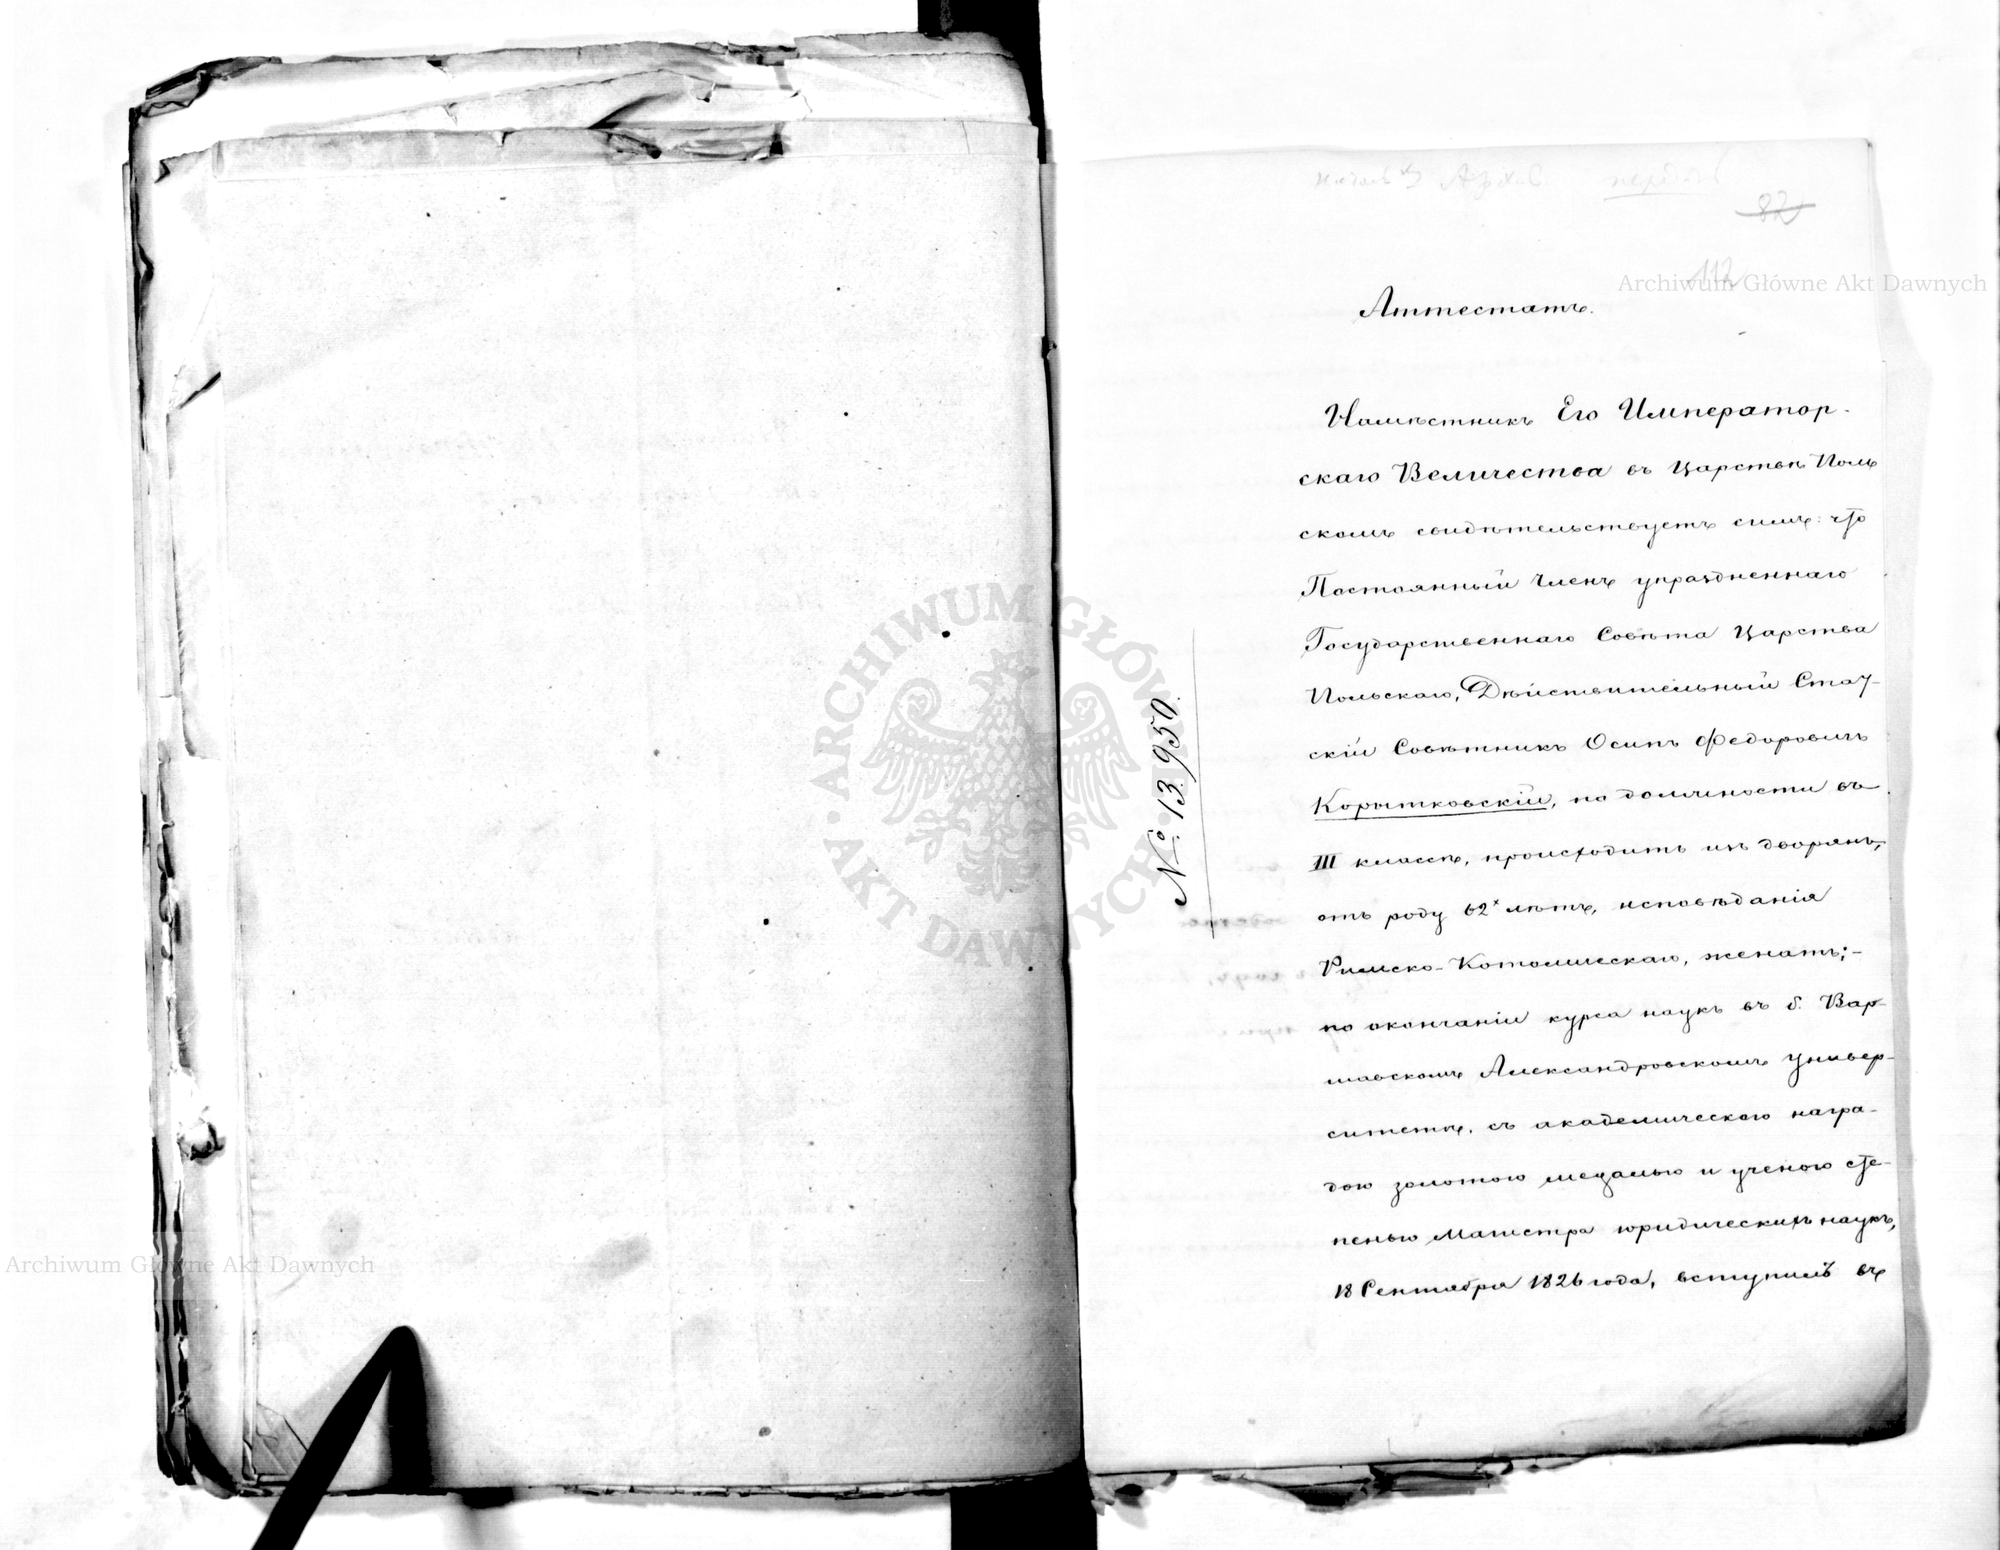 82
112
Аттестатъ.
Намѣстникъ Его Император-
скаго Величества въ Царствѣ Поль
скомъ свидѣтельствуетъ симъ: что
Постоянный Членъ упраздненнаго
Государственнаго Совѣта Царства
Польскаго, Дѣйствительный Стат-
скій Совѣтникъ Осипъ Федоровичъ
Корытковскій, по должности въ
III классѣ, происходитъ изъ дворянъ,
отъ роду 62х лѣтъ, исповѣданія
Римско-Католическаго, женатъ;-
по окончаніи курса наукъ въ б. Вар-
шавскомъ Александровскомъ Универ-
ситетѣ, съ академическою награ-
дою золотою медалью и ученою сте-
пенью Магистра юридическихъ наукъ,
18 Сентября 1826 года, вступилъ въ
№ 13.950.
Archiwum Główne Akt Dawnych
ARCHIWUM GŁÓWNE AKT DAWNYCH
Archiwum Główne Akt Dawnych